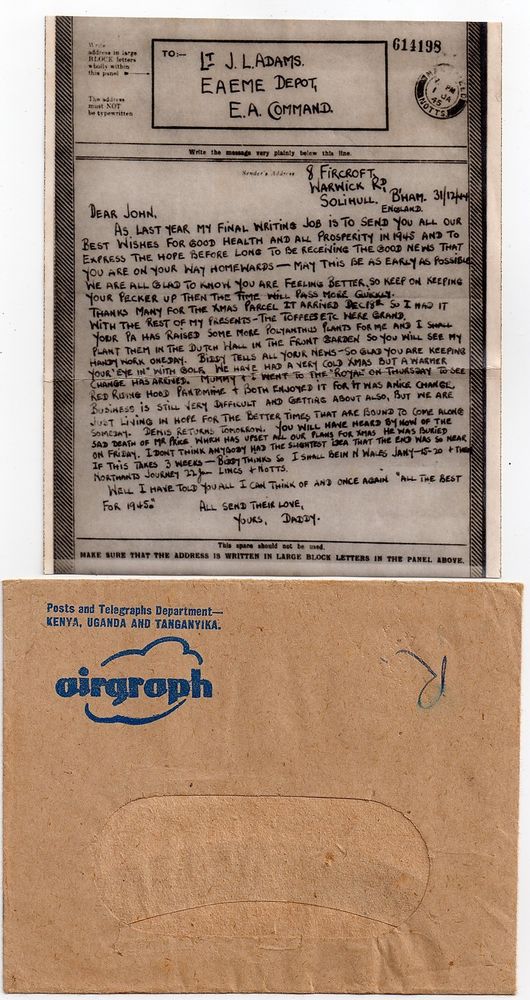 Write
address in large
BLOCK letters
wholly within
this panel
The address
must NOT
be typewritten
TO:-
LT J.L. ADAMS.
EAEME DEPOT,
E.A. COMMAND.
614198
PM
1 JA
45
NOTTS
Write the message very plainly below this line.
Sender's Address
8, FIRCROFT,
WARWICK RD,
SOLIHULL. B'HAM. 31/12/44
ENGLAND.
DEAR JOHN,
AS LAST YEAR MY FINAL WRITING JOB IS TO SEND YOU ALL OUR
BEST WISHES FOR GOOD HEALTH AND ALL PROSPERITY IN 1945 AND TO
EXPRESS THE HOPE BEFORE LONG TO BE RECEIVING THE GOOD NEWS THAT
YOU ARE ON YOUR WAY HOMEWARDS — MAY THIS BE AS EARLY AS POSSIBLE
WE ARE ALL GLAD TO KNOW YOU ARE FEELING BETTER, SO KEEP ON KEEPING
YOUR PECKER UP THEN THE TIME WILL PASS MORE QUICKLY.
THANKS MANY FOR THE XMAS PARCEL IT ARRIVED DEC 18th SO I HAD IT
WITH THE REST OF MY PRESENTS — THE TOFFEES ETC WERE GRAND.
YOUR PA HAS RAISED SOME MORE POLYANTHUS PLANTS FOR ME AND I SHALL
PLANT THEM IN THE DUTCH WALL IN THE FRONT GARDEN SO YOU WILL SEE MY
HANDY WORK ONE DAY. BIDDY TELLS ALL YOUR NEWS — SO GLAD YOU ARE KEEPING
YOUR "EYE IN" WITH GOLF. WE HAVE HAD A VERY COLD XMAS BUT A WARMER
CHANGE HAS ARRIVED. MUMMY + I WENT TO THE "ROYAL" ON THURSDAY TO SEE
RED RIDING HOOD PANTOMIME + BOTH ENJOYED IT FOR IT WAS A NICE CHANGE.
BUSINESS IS STILL VERY DIFFICULT AND GETTING ABOUT ALSO, BUT WE ARE
JUST LIVING IN HOPE FOR THE BETTER TIMES THAT ARE BOUND TO COME ALONG
SOMEDAY. DENIS RETURNS TOMORROW. YOU WILL HAVE HEARD BY NOW OF THE
SAD DEATH OF MR PRICE WHICH HAS UPSET ALL OUR PLANS FOR XMAS HE WAS BURIED
ON FRIDAY. I DON'T THINK ANYBODY HAD THE SLIGHTEST IDEA THAT THE END WAS SO NEAR
IF THIS TAKES 3 WEEKS — BIDDY THINKS SO I SHALL BE IN N WALES JANY — 15-20 + THEN
NORTHANTS JOURNEY 22 Jan LINCS + NOTTS.
WELL I HAVE TOLD YOU ALL I CAN THINK OF AND ONCE AGAIN "ALL THE BEST
FOR 1945." ALL SEND THEIR LOVE,
YOURS, DADDY.
This space should not be used.
MAKE SURE THAT THE ADDRESS IS WRITTEN IN LARGE BLOCK LETTERS IN THE PANEL ABOVE.
Posts and Telegraphs Department—
KENYA, UGANDA AND TANGANYIKA.
airgraph